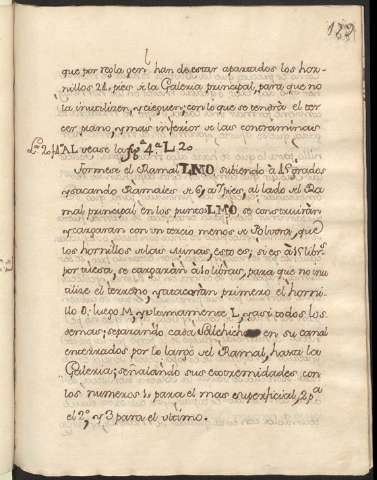 189
que por regla gen.l han de estar apartados los hor-
nillos 24 pies de la Galeria principal, para que no
la inutilizen, y cieguen; con lo que se tendrá el ter
cer plano, y mas inferior de las contraminas
AL vease la fig.a 4.a L 20
Formese el Ramal LNO, subiendo à 15 grados
y sacando Ramales de 6, a 7 pies, al lado del Ra
mal principal en los puntos LMO, se construirán
y cargarán con un tercio menos de Polvora, que
los hornillos de las Minas, esto es; si es à 15 libr.s
por tuesa, se cargarán à 10 libras, para que no inu
tilize el terreno, y atacarán primero el horni
llo O. luego M, y ultimamente L, y casi todos los
demas; separando cada Salchicha en su canal
enterrados por lo largo del Ramal, hasta la
Galeria; señalando sus extremidades con
los numeros 1. para el mas superficial, 2 p.a
el 2.o, y 3 para el ultimo.